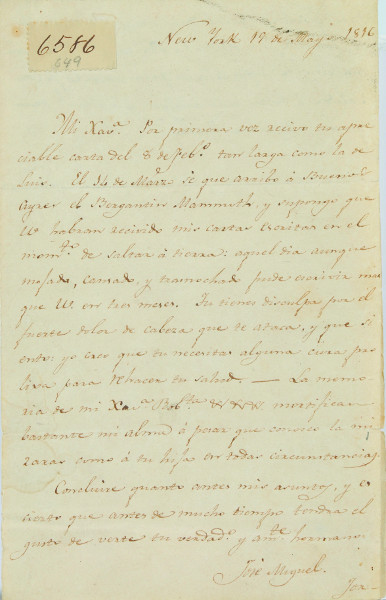 6586
649
New York 17 de Mayo 1816
Mi Xav.ª Por primera vez recivo tu apre
ciable carta del 8 de Feb.º tan larga como la de
Luis. El 14 de Marzo se que arribo á Buenos
Ayres el Bergantin Mammuth, y supongo que
W habran recivido mis cartas escritas en el
mom.to de saltar á tierra: aquel dia aunque
mojado, cansado, y trasnochado pude escrivir mas
que W. en tres meses. Tu tienes disculpa por el
fuerte dolor de cabeza que te ataca, y que si
ento; yo creo que tu necesitas alguna cura
para rehacer tu salud. — La memo
ria de mi Xav.ª mortifican
bastante mi alma á pesar que conosco la mi
raras como á tu hija en todas circunstancias.
Concluire quanto antes mis asuntos, y es
cierto que antes de mucho tiempo tendra el
gusto de verte tu verdad.º y am.te hermano
José Miguel.